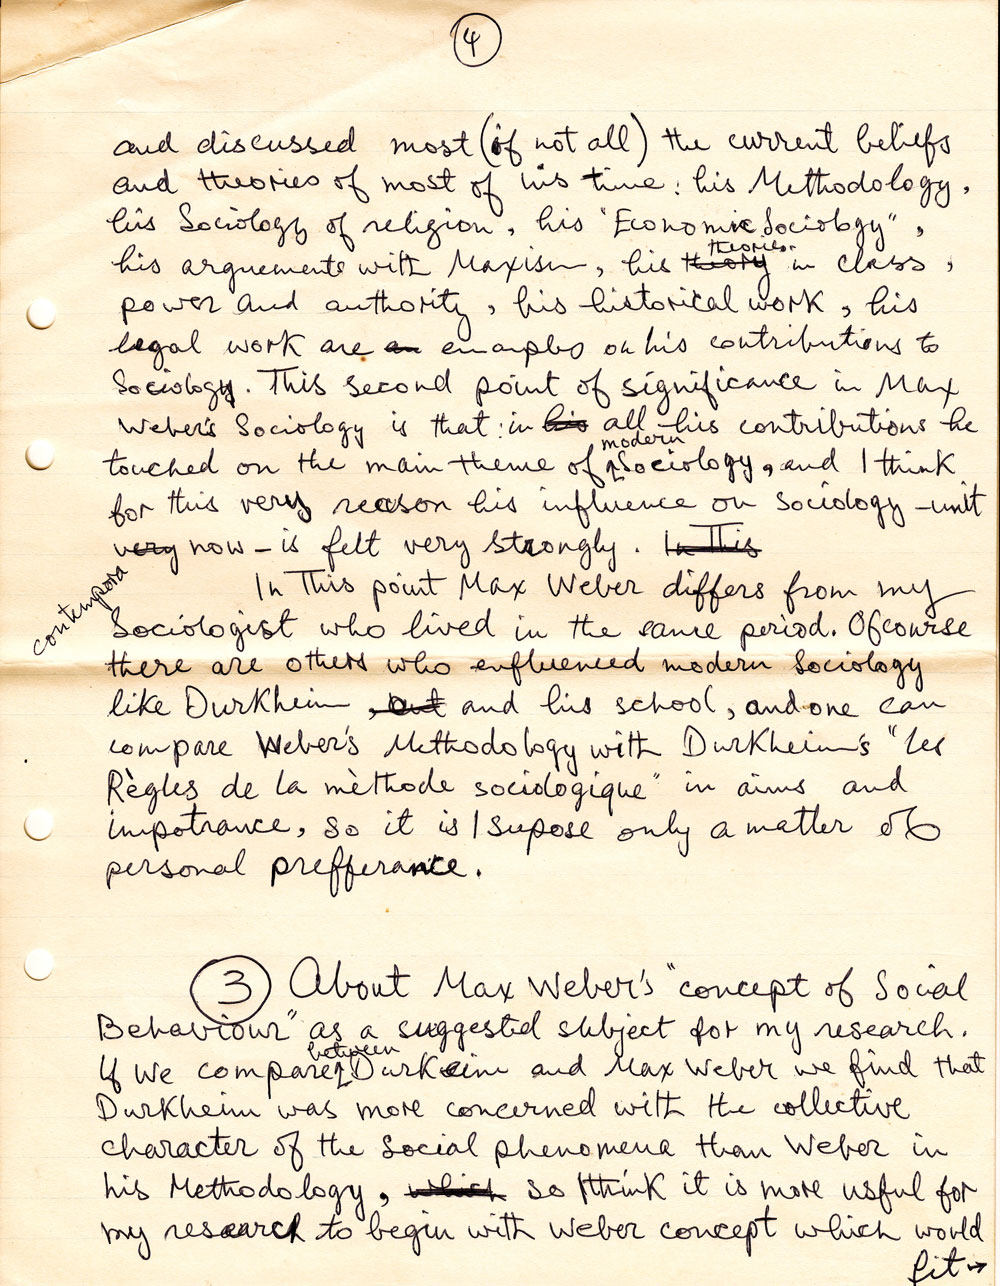 4
and discussed most (if not all) the current beliefs
and theories of most of his time: his Methodology,
his Sociology of religion, his "Economic Sociology",
his arguements with Maxism, his theory theories in class,
power and authority, his historical work, his
legal work are an examples on his contributions to
Sociology. This second point of significance in Max
Weber's Sociology is that: in his all his contributions he
touched on the main theme of modern Sociology, and I think
for this very reason his influence on sociology - until
very now - is felt very strongly. In This
In This point Max Weber differs from my
contempora
Sociologist who lived in the same period. Ofcourse
there are others who enfluenced modern Sociology
like Durkheim , but and his school, and one can
compare Weber's Methodology with Durkheim's "les
Règles de la mèthode sociologique" in aims and
impotrance, so it is I supose only a matter of
personal prefferance.
3 About Max Weber's "concept of Social
Behaviour" as a suggested subject for my research.
If we compare between Durkeim and Max Weber we find that
Durkheim was more concerned with the collective
character of the Social phenomena than Weber in
his Methodology, which so I think it is more usful for
my research to begin with Weber concept which would
fit →